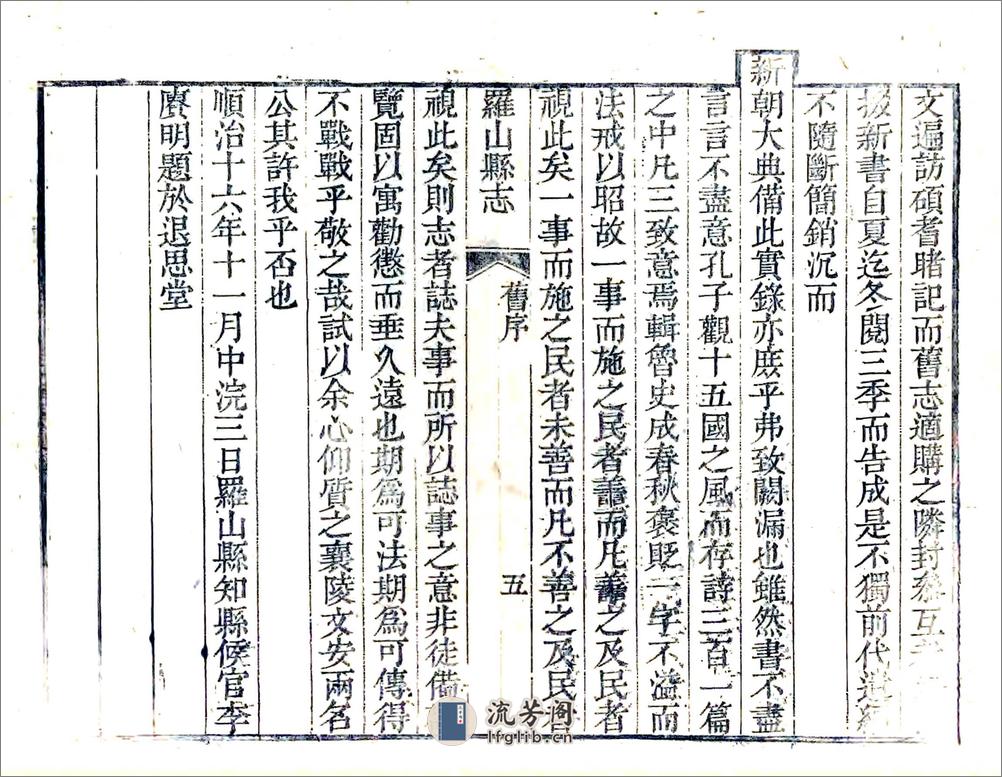 文遍訪碩耆睹記而舊志適購之隣封叅互考
掇新書自夏迄冬閱三季而告成是不獨前代遺
不隨斷簡銷沉而
新朝大典備此實錄亦庻乎弗致闕漏也雖然書不盡
言言不盡意孔子觀十五國之風而存詩三百一篇
之中凡三致意焉輯魯史成春秋褒貶一字不溢而
法戒以昭故一事而施之民者善而凡善之及民者
視此矣一事而施之民者未善而凡不善之及民者
羅山縣志
舊序
五
視此矣則志者誌夫事而所以誌事之意非徒備
覽固以寓勸懲而垂久遠也期爲可法期爲可傳得
不戰戰乎敬之哉試以余心仰質之襄陵文安兩名
公其許我乎否也
順治十六年十一月中浣三日羅山縣知縣候官李
賡明題於退思堂
流芳阁
lfglib.cn